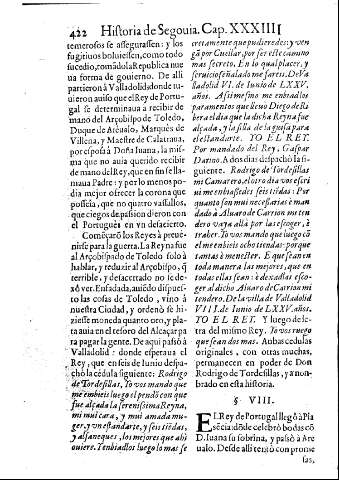 422 Historia de Segouia. Cap. XXXIIII
temerosos se assegurassen: y los
fugitiuos boluiessen, como todo
sucedio, tomãdo la Republica nue
ua forma de gouierno. De alli
partieron à Valladolid donde tu-
uieron auiso que el Rey de Portu-
gal se determinaua a recibir de
mano del Arçobispo de Toledo,
Duque de Areualo, Marquès de
Villena, y Maestre de Calatraua,
por esposa à Doña Iuana, la mis-
ma que no auia querido recibir
de mano del Rey, que en fin se lla-
maua Padre: y por lo menos po-
dia mejor ofrecer la corona que
posseia, que no quatro vassallos,
que ciegos de passion dieron con
el Portugues en vn desacierto.
Començarõ los Reyes à preue-
nirse para la guerra. La Reyna fue
al Arçobispado de Toledo solo à
hablar, y reduzir al Arçobispo, q̃
terrible, y desacertado no se de-
xò ver. Enfadada, auiẽdo dispues-
to las cosas de Toledo, vino à
nuestra Ciudad, y ordenò se hi-
ziesse moneda quanto oro, y pla-
ta auia en el tesoro del Alcaçar pa
ra pagar la gente. De aqui passò à
Valladolid: donde esperaua el
Rey, que en seis de Iunio despa-
chò la cédula siguiente: Rodrigo
de Tordesillas, Yo vos mando que
me embieis luego el pendon con que
fue alçada la serenissima Reyna,
mi mui cara, y mui amada mu-
ger, y vn estandarte, y seis tiẽdas,
y alfaneques, los mejores que ahi
ouiere. Y enbiadlos luego lo mas se
cretamente que pudieredes: y ven
gã por Cuellar, por ser este camino
mas secreto. En lo qual placer, y
seruicio señalado me fareis. De Va
lladolid VI. de Iunio de LXXV.
años. Assimesmo me enbiad los
paramentos que lleuò Diego de Ri-
bera el dia que la dicha Reyna fue
alçada, y la silla de la guisa para
el estandarte. YO EL REY.
Por mandado del Rey, Gaspar
Darino. A dos dias despachò la si-
guiente. Rodrigo de Tordesillas
mi Camarero, el otro dia vos escri
ui me enbiassedes seis tiẽdas: Por
quanto son mui necessarias è man
dado à Aluaro de Carrion mi ten
dero vaya allà por las escoger, è
traher. Yo vos mando que luego cõ
el me enbieis ocho tiendas: porque
tantas è menester. E que sean en
toda manera las mejores, que en
todas ellas sean: è dexadlas esco-
ger al dicho Aluaro de Carrion mi
tendero. De la villa de Valladolid
VIII. de Iunio de LXXV. años.
YO EL REY. Y luego de le-
tra del mismo Rey. Yo vos ruego
que sean dos mas. Ambas cedulas
originales, con otras muchas,
permanecen en poder de Don
Rodrigo de Tordesillas, ya non-
brado en esta historia.
§ VIII.
EL Rey de Portugal llegò à Pla
sẽcia dõde celebrò bodas cõ
D. Iuana su sobrina, y passò à Are
ualo. Desde alli tentò con prome
sas,